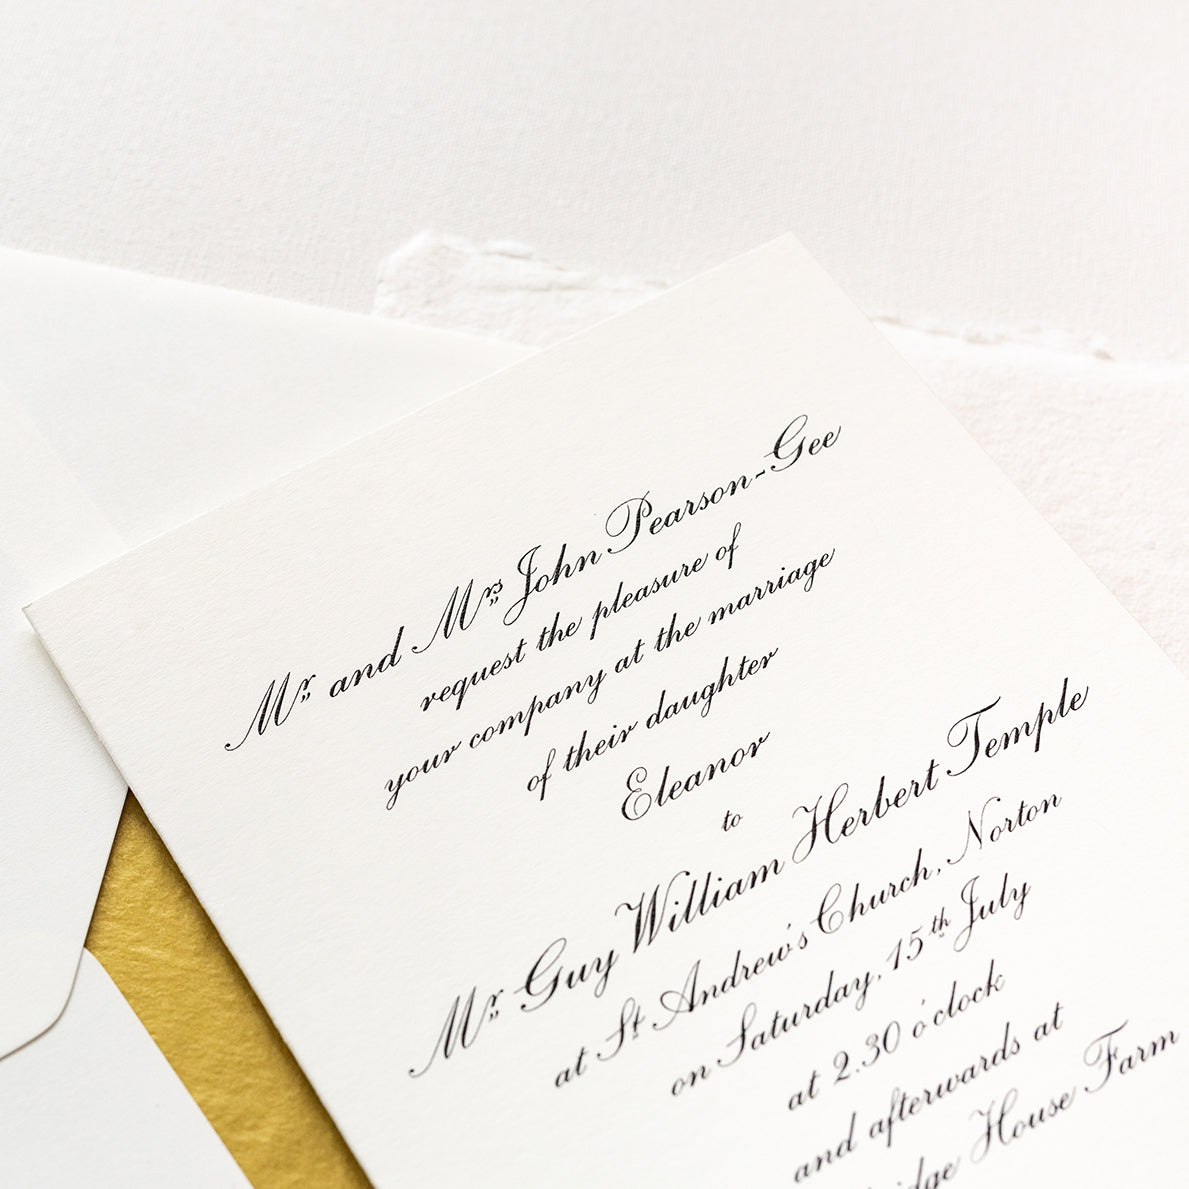 Mr. and Mrs. John Pearson-Gee
request the pleasure of
your company at the marriage
of their daughter
Eleanor
to
Mr. Guy William Herbert Temple
at St. Andrew's Church, Norton
on Saturday, 15th July
at 2.30 o'clock
and afterwards at
House Farm